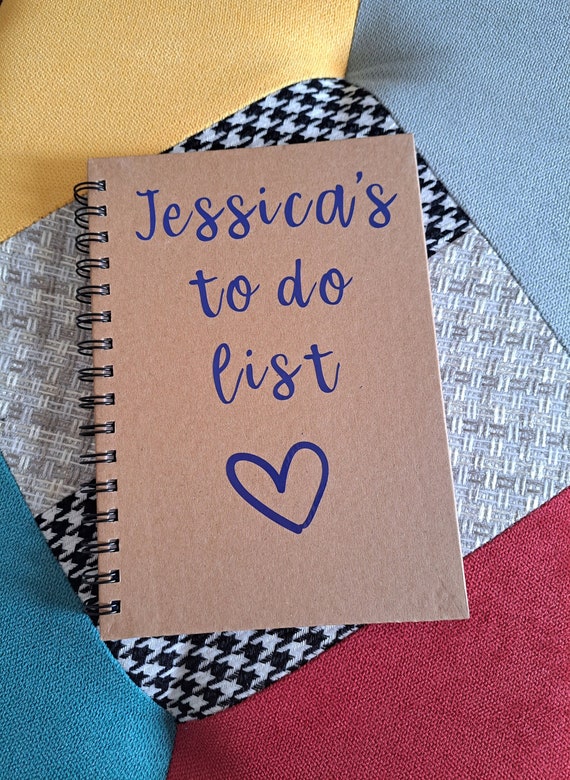 Jessica's
to do
list